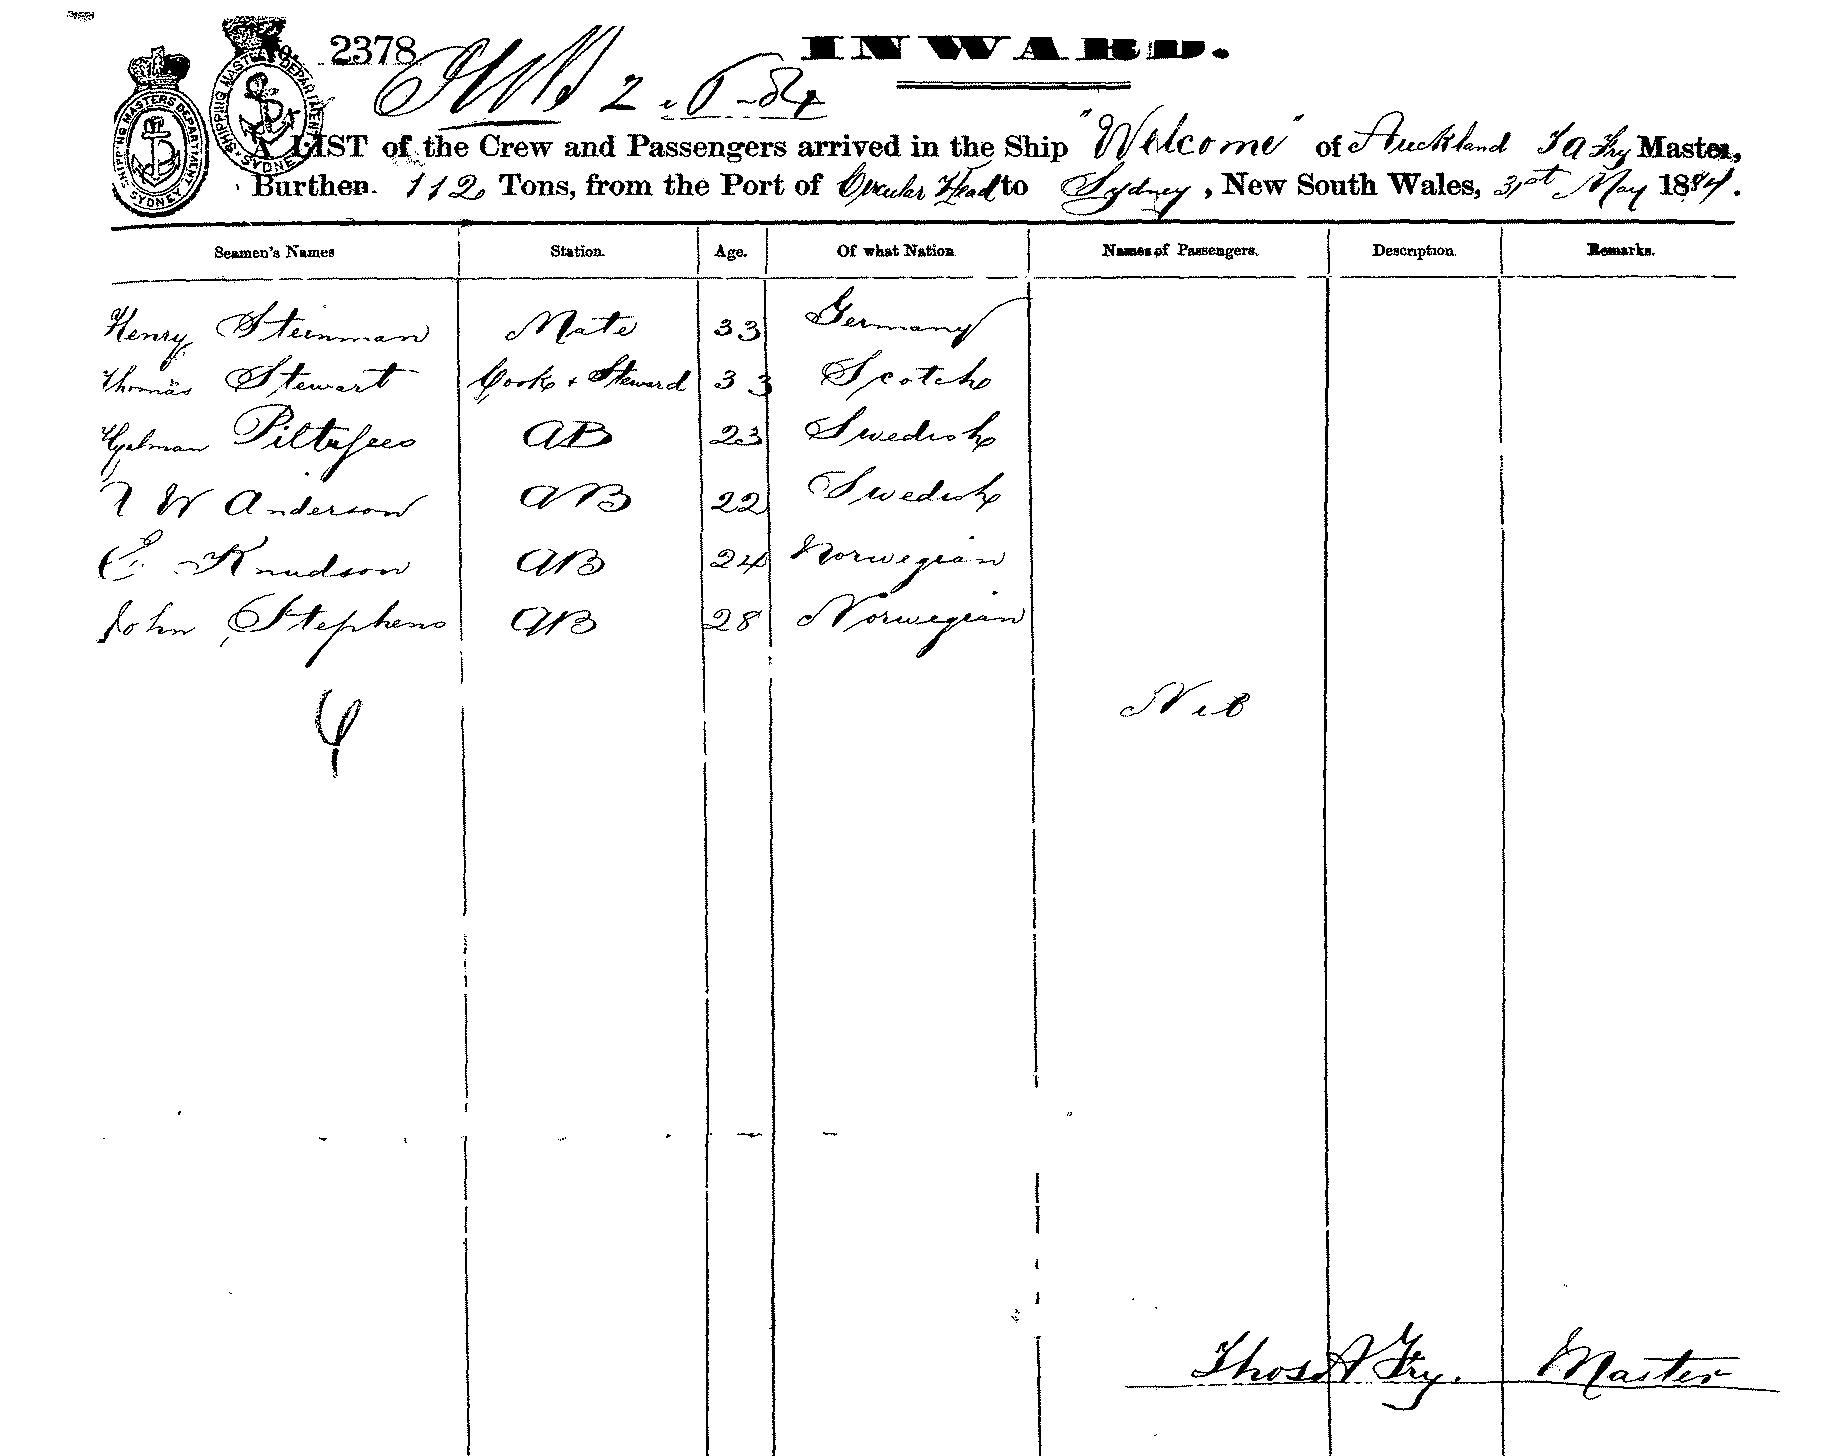 2378
INWARD.
SHIPPING MASTERS DEPARTMENT SYDNEY
SHIPPING MASTERS DEPARTMENT SYDNEY
A LIST of the Crew and Passengers arrived in the Ship "Welcome" of Auckland T A Fry Master,
Burthen 112 Tons, from the Port of Circular Head to Sydney, New South Wales, 31st May 1884.
Seamen's Names Station. Age. Of what Nation Names of Passengers. Description Remarks.
Henry Steinman Mate 33 Germany
Thomas Stewart Cook + Steward 33 Scotch
Hjalman AB 23 Swedish
W Anderson AB 22 Swedish
E. Knudson AB 24 Norwegian
John Stephens AB 28 Norwegian
Nil
Thos A Fry. Master